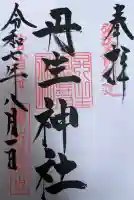 奉拝
丹生神社
令和六年八月一日